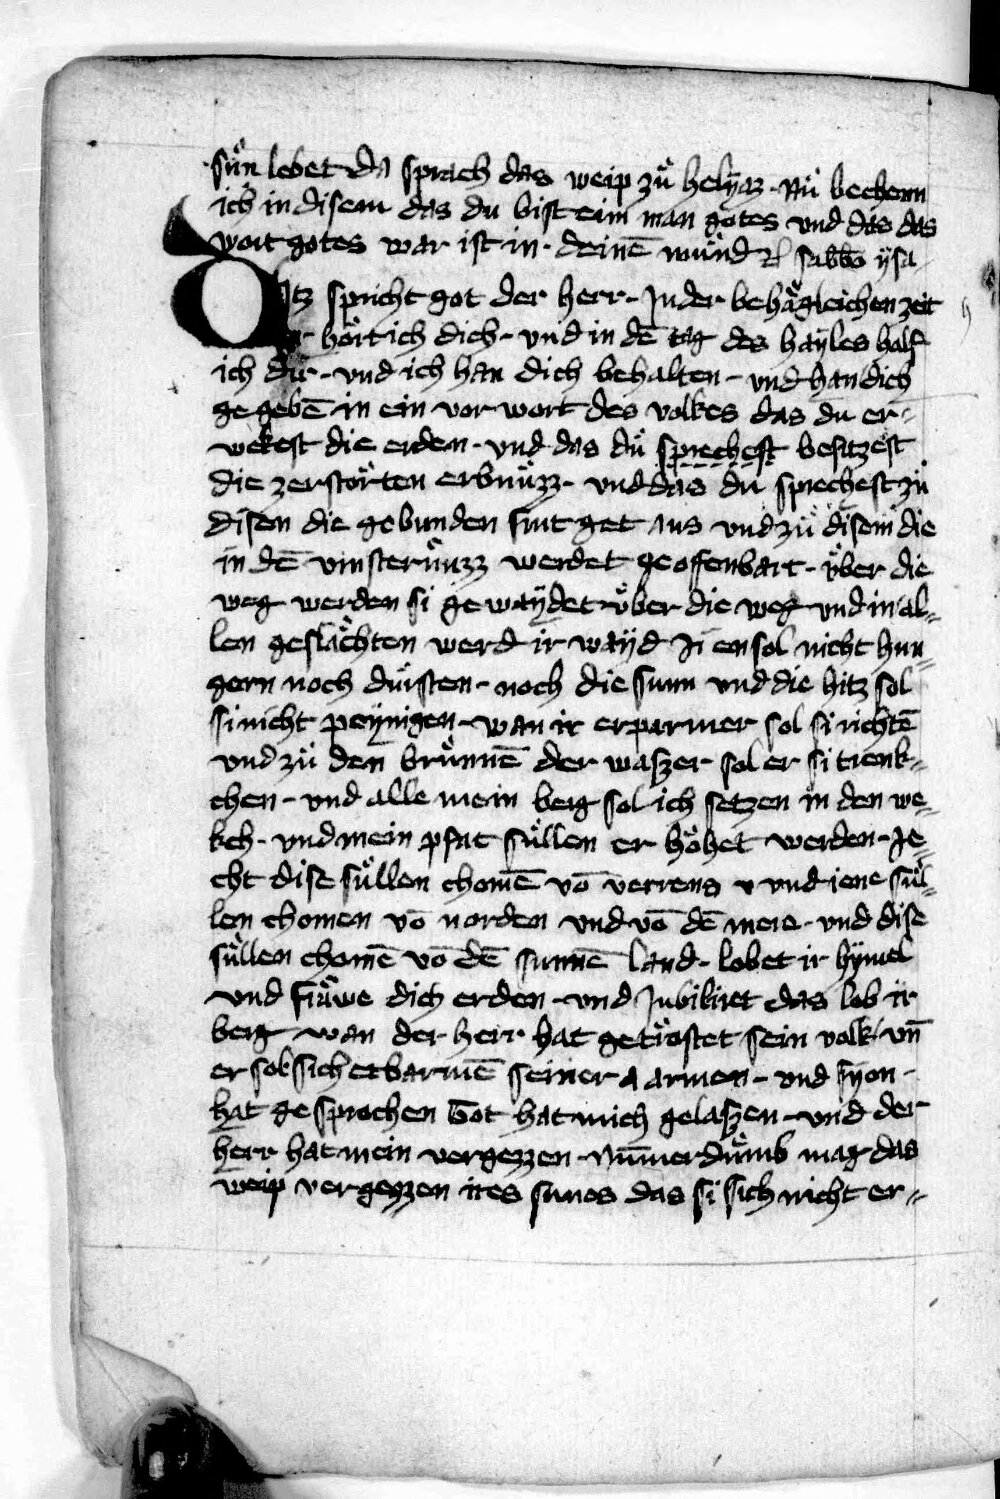 sůn lebet da sprach das weip zů helÿaz · Nů bechenn
ich in disem das du bist eim man gotes vnd das das
wort gotes war ist in · deinē můnd sabbō ÿsa
Ditz spricht got der herr – Jn der behågleichen zeit
er hört ich dich – vnd in dē tag des haÿles half
ich dir – vnd ich han dich behalten – vnd han dich
ge gebē in ein vor wort des volkes das du er=
wekest die erden – vnd das dů sprechest besitzest
die zerstörten erbnůzz – vnd das du sprechest zů
disen die gebunden sint get aus vnd zů disem die
in dē vinsternůzz werdet geoffenbart – v̊ber die
weg werden si ge waÿdet v̊ber die weg vnd in al=
len geslåchten werd ir waÿd Ji en sol nicht hun=
gern noch důrsten – noch die sunn vnd die hitz sol
si nicht peÿnigen – wan ir erparmer sol si richtē
vnd zů den brůnnē der waszer sol er si trenk=
chen – vnd alle mein berg sol ich setzen in den we=
kch – vnd mein pfat sůllen er höhet werden – Se=
cht dise sůllen chomē vō verrens v vnd iene sůl=
len chomen vō norden vnd vō dē mere – vnd dise
sůllen chomē vō dē sunnē land – lobet ir hÿmel
vnd fråwe dich erden – vnd Jubiliret das lob ir
berg wan der herr hat getröstet sein volk vn̄
er sol sich erbarmē seiner a armen – vnd sÿon –
hat ge sprochen Got hat mich gelaszen – vnd der
herr hat mein vergezzen – Nūmerdůmb mag das
weip vergezzen ires sunes das si sich nicht er=